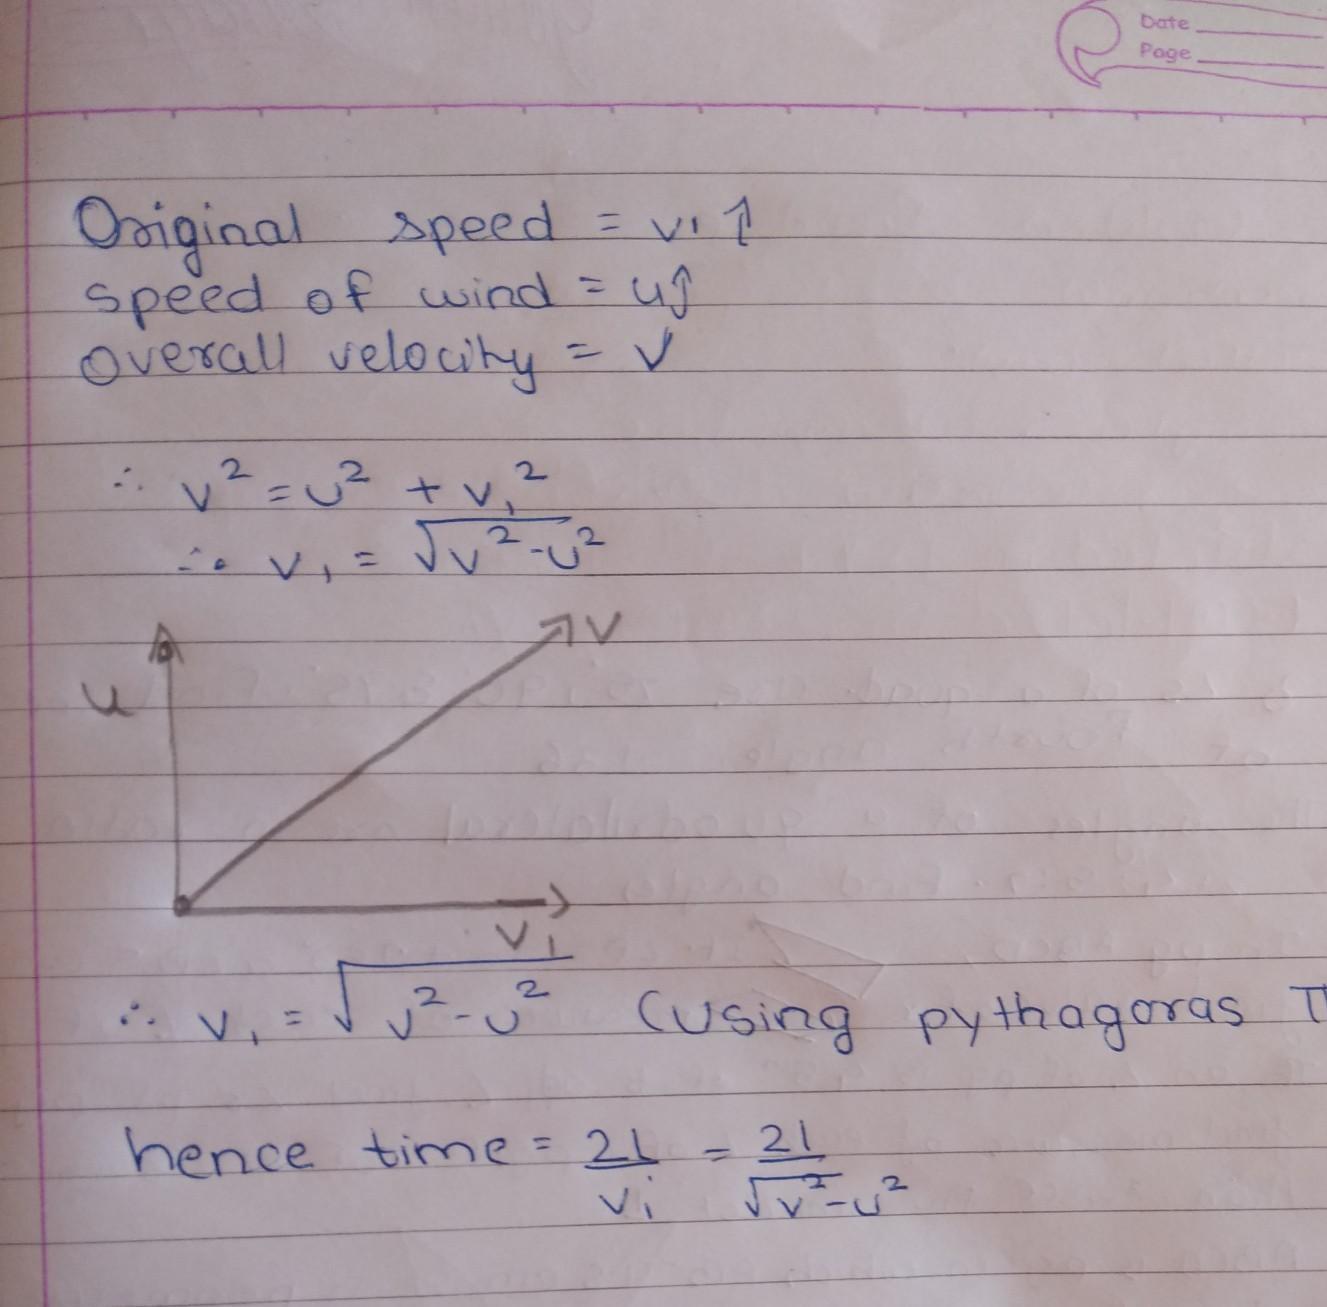 Date
Page
Original speed = v₁ ↑
speed of wind = u↑
overall velocity = v
∴ v² = u² + v₁²
∴ v₁ = √v²-u²
v
u
v₁
∴ v₁ = √v²-u² (using pythagoras T
hence time = 2l/v₁ = 2l/√v²-u²